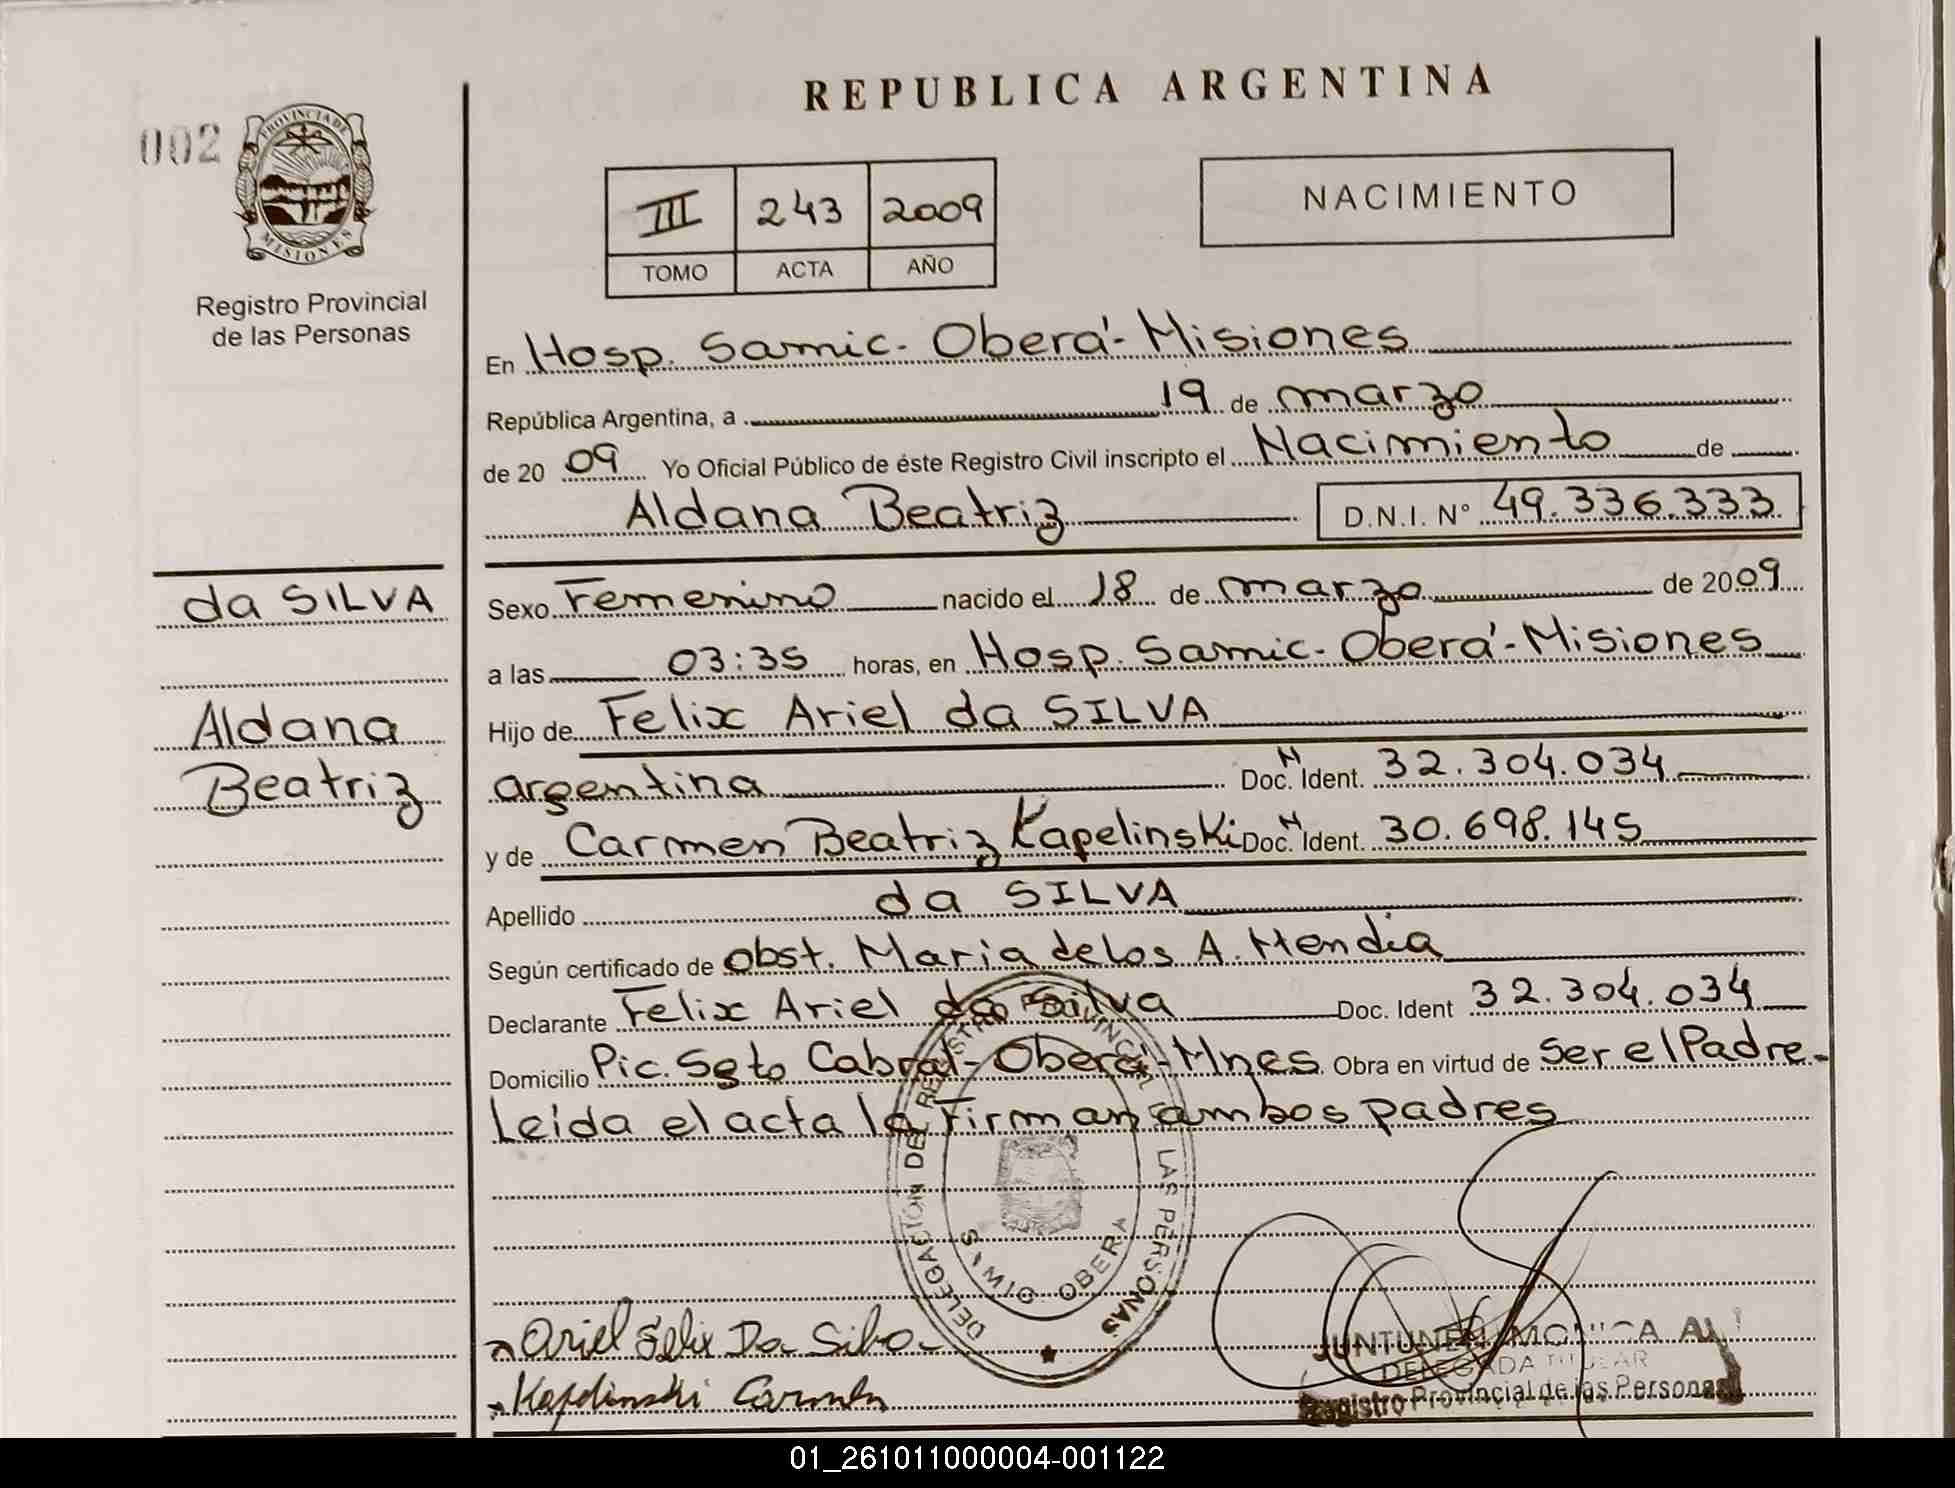 REPUBLICA ARGENTINA
002
PROVINCIA DE
MISIONES
Registro Provincial
de las Personas
III 243 2009
TOMO ACTA AÑO
NACIMIENTO
En Hosp. Samic. Oberá-Misiones
República Argentina, a 19 de marzo
de 2009 Yo Oficial Público de éste Registro Civil inscripto el Nacimiento de
Aldana Beatriz D.N.I. N° 49.336.333
da SILVA
Aldana
Beatriz
Sexo Femenino nacido el 18 de marzo de 2009
a las 03:35 horas, en Hosp. Samic. Oberá-Misiones
Hijo de Felix Ariel da SILVA
argentina Doc. N Ident. 32.304.034
y de Carmen Beatriz Kapelinski Doc. N Ident. 30.698.145
Apellido da SILVA
Según certificado de obst. Maria de los A. Mendia
Declarante Felix Ariel da Silva Doc. Ident 32.304.034
Domicilio Pic. Sgto Cabral-Oberá-Mnes. Obra en virtud de Ser el Padre.-
Leida el acta la Firman ambos padres
DELEGACIÓN DEL REGISTRO PROVINCIAL LAS PERSONAS
OBERA
Ariel Felix Da Silva
Kapelinski Carmen
JUNTUNEN MONICA
DELEGADA TITULAR
Registro Provincial de las Personas
01_261011000004-001122